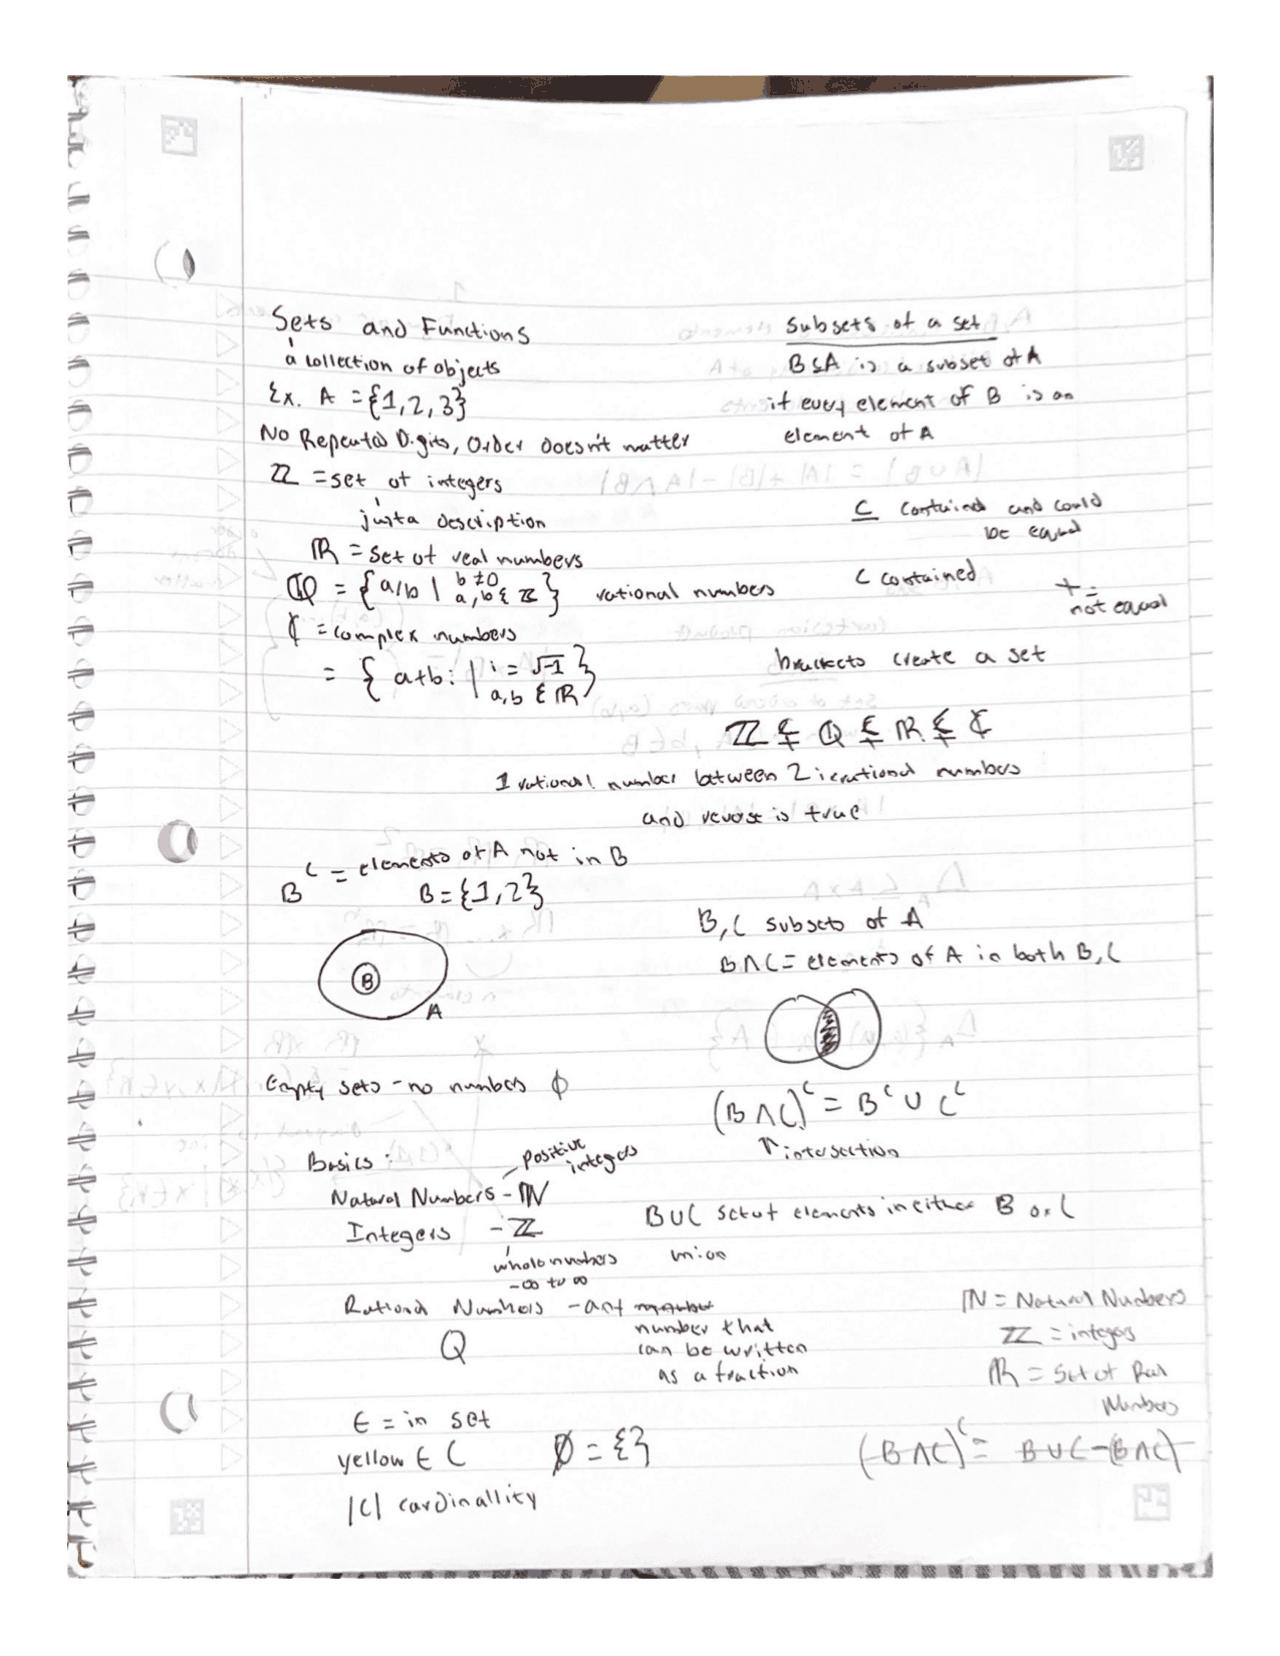 Sets and Functions
a collection of objects
Ex. A = {1, 2, 3}
No Repeated Digits, Order doesn't matter
ℤ = set of integers
just a description
ℝ = set of real numbers
ℚ = {a/b | b ≠ 0 a, b ∈ ℤ} rational numbers
ℂ = complex numbers
= { a+bi | i = √-1 a, b ∈ ℝ }
Subsets of a set
B ⊆ A is a subset of A
if every element of B is an
element of A
⊆ contained and could
be equal
⊂ contained
+ =
not equal
brackets create a set
ℤ ⊊ ℚ ⊊ ℝ ⊊ ℂ
1 rational number between 2 irrational numbers
and reverse is true
Bᶜ = elements of A not in B
B = {1, 2}
B
A
B, C subsets of A
B ∩ C = elements of A in both B, C
Empty sets - no numbers ∅
(B ∩ C)ᶜ = Bᶜ ∪ Cᶜ
↑ intersection
Basics:
positive
integers
Natural Numbers - ℕ
Integers - ℤ
whole numbers
-∞ to ∞
B ∪ C set of elements in either B or C
union
Rational Numbers - any
number that
can be written
as a fraction
Q
ℕ = Natural Numbers
ℤ = integers
ℝ = Set of Real
Numbers
∈ = in set
yellow ∈ C
∅ = {}
(B ∩ C)ᶜ = B ∪ C - (B ∩ C)
|C| cardinallity